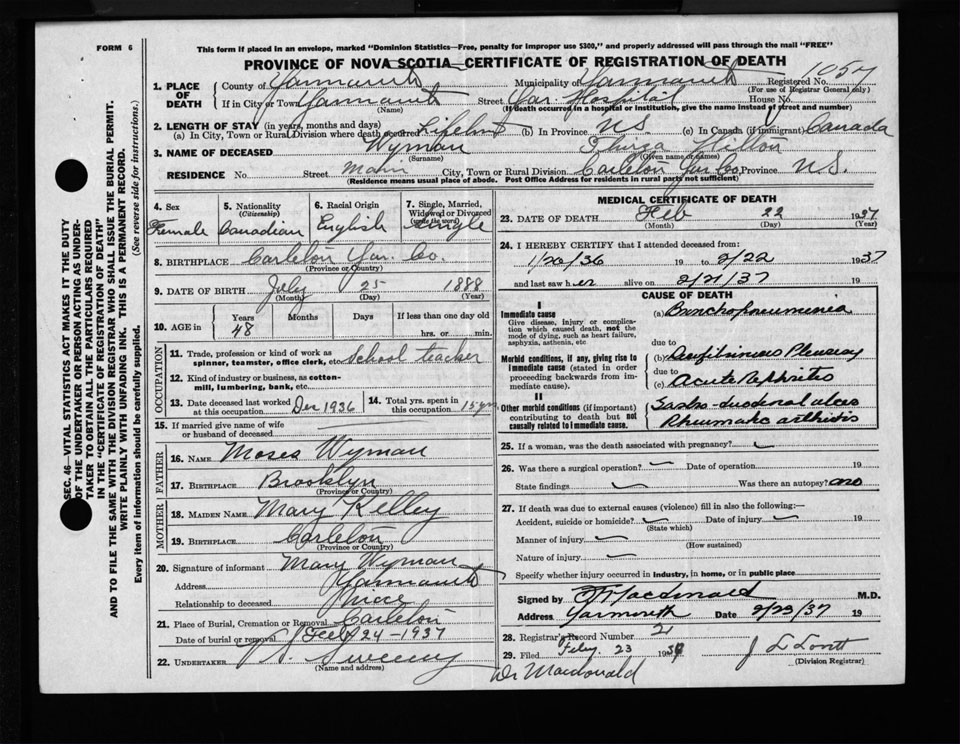 FORM 6
This form if placed in an envelope, marked "Dominion Statistics—Free, penalty for improper use $300," and properly addressed will pass through the mail "FREE"
PROVINCE OF NOVA SCOTIA—CERTIFICATE OF REGISTRATION OF DEATH
1. PLACE OF DEATH
County of Yarmouth Municipality of Yarmouth Registered No. 1057
(For use of Registrar General only)
If in City or Town Yarmouth Street Yar. Hospital House No.
(Name) (If death occurred in a hospital or institution, give the name instead of street and number)
2. LENGTH OF STAY (in years, months and days)
(a) In City, Town or Rural Division where death occurred (b) In Province N.S. (c) In Canada (if immigrant) Canada
3. NAME OF DECEASED Wyman Hilton
(Surname) (Given name or names)
RESIDENCE No. Street Main City, Town or Rural Division Carleton Yar Co. Province N.S.
(Residence means usual place of abode. Post Office Address for residents in rural parts not sufficient)
4. Sex
Female
5. Nationality
(Citizenship)
Canadian
6. Racial Origin
English
7. Single, Married, Widowed or Divorced
(write the word)
Single
8. BIRTHPLACE Carleton Yar. Co.
(Province or Country)
9. DATE OF BIRTH July 25 1888
(Month) (Day) (Year)
10. AGE in Years Months Days If less than one day old
48 hrs. or min.
OCCUPATION
11. Trade, profession or kind of work as spinner, teamster, office clerk, etc. School teacher
12. Kind of industry or business, as cotton-mill, lumbering, bank, etc.
13. Date deceased last worked at this occupation Dec 1936
14. Total yrs. spent in this occupation 15 yrs
15. If married give name of wife or husband of deceased
FATHER
16. NAME Moses Wyman
17. BIRTHPLACE Brooklyn
(Province or Country)
MOTHER
18. MAIDEN NAME Mary Kelley
19. BIRTHPLACE Carleton
(Province or Country)
20. Signature of informant Mary Wyman
Address Yarmouth
Relationship to deceased Niece
21. Place of Burial, Cremation or Removal Carleton
Date of burial or removal Feb 24-1937
22. UNDERTAKER Sweeny
(Name and address)
MEDICAL CERTIFICATE OF DEATH
23. DATE OF DEATH Feb 22 1937
(Month) (Day) (Year)
24. I HEREBY CERTIFY that I attended deceased from:
1/20/36 19 to 2/22 1937
and last saw her alive on 2/21/37 19
CAUSE OF DEATH
I
Immediate cause
Give disease, injury or complication which caused death, not the mode of dying, such as heart failure, asphyxia, asthenia, etc
(a) Bronchopneumonia
due to
Morbid conditions, if any, giving rise to immediate cause (stated in order proceeding backwards from immediate cause).
(b) Pleurisy
due to
(c) Acute Nephritis
II
Other morbid conditions (if important) contributing to death but not causally related to immediate cause.
Gastro-duodenal ulcer
Rheumatic arthritis
25. If a woman, was the death associated with pregnancy?
26. Was there a surgical operation? Date of operation 19
State findings Was there an autopsy? no
27. If death was due to external causes (violence) fill in also the following:—
Accident, suicide or homicide? Date of injury 19
(State which)
Manner of injury
(How sustained)
Nature of injury
Specify whether injury occurred in industry, in home, or in public place
Signed by Macdonald M.D.
Address Yarmouth Date 2/23/37 19
28. Registrar's Record Number 21
29. Filed Feby 23 19
(Division Registrar)
Dr Macdonald
SEC. 46—VITAL STATISTICS ACT MAKES IT THE DUTY OF THE UNDERTAKER OR PERSON ACTING AS UNDERTAKER TO OBTAIN ALL THE PARTICULARS REQUIRED IN THE "CERTIFICATE OF REGISTRATION OF DEATH" AND TO FILE THE SAME WITH THE DIVISION REGISTRAR WHO SHALL ISSUE THE BURIAL PERMIT.
WRITE PLAINLY WITH UNFADING INK. THIS IS A PERMANENT RECORD.
Every item of information should be carefully supplied. (See reverse side for instructions.)